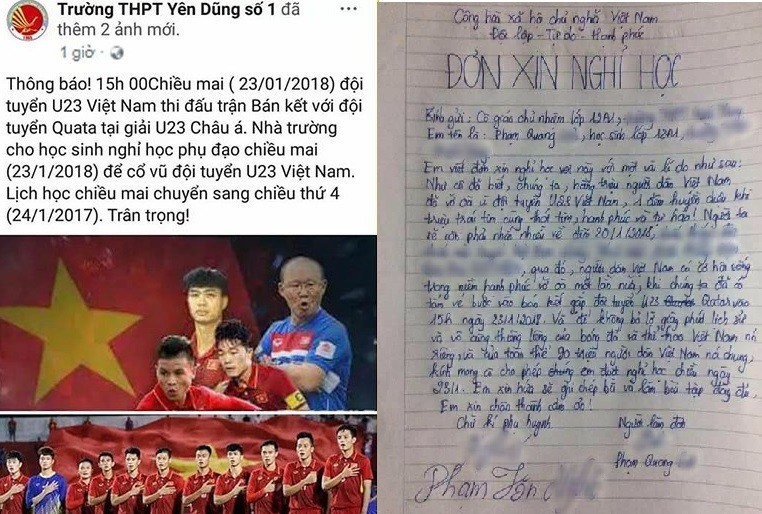 Trường THPT Yên Dũng số 1 đã
thêm 2 ảnh mới.
1 giờ
Thông báo! 15h 00Chiều mai ( 23/01/2018) đội
tuyển U23 Việt Nam thi đấu trận Bán kết với đội
tuyển Quata tại giải U23 Châu á. Nhà trường
cho học sinh nghỉ học phụ đạo chiều mai
(23/1/2018) để cổ vũ đội tuyển U23 Việt Nam.
Lịch học chiều mai chuyển sang chiều thứ 4
(24/1/2017). Trân trọng!
Cộng hòa xã hội chủ nghĩa Việt Nam
Độc lập - Tự do - Hạnh phúc
ĐƠN XIN NGHỈ HỌC
Kính gửi: Cô giáo chủ nhiệm lớp 12A1
Em tên là: Phạm Quang học sinh lớp 12A1
Em viết đơn xin nghỉ học với một vài lí do như sau:
Như cô đã biết, chúng ta, hàng triệu người dân Việt Nam
đã vỡ òa vì đội tuyển U23 Việt Nam, khi
triệu trái tim cùng thổn thức, hạnh phúc và tự hào! Người ta
sẽ còn phải nhắc nhiều về đêm 20/1/2018,
qua đó, người dân Việt Nam có cơ hội sống
trong niềm hạnh phúc và có một lần nữa, khi chúng ta đã có
tấm vé bước vào bán kết gặp đội tuyển U23 Qatar vào
15h ngày 23/1/2018. Và để không bỏ lỡ giây phút lịch sử
và vô cùng thiêng liêng của bóng đá và thể thao Việt Nam nói
riêng, và của toàn thể 90 triệu người dân Việt Nam nói chung,
kính mong cô cho phép chúng em được nghỉ học chiều ngày
23/1. Em xin hứa sẽ ghi chép bài và làm bài tập đầy đủ.
Em xin chân thành cảm ơn!
Chữ kí phụ huynh
Người làm đơn
Phạm Quang
Phạm Tôn